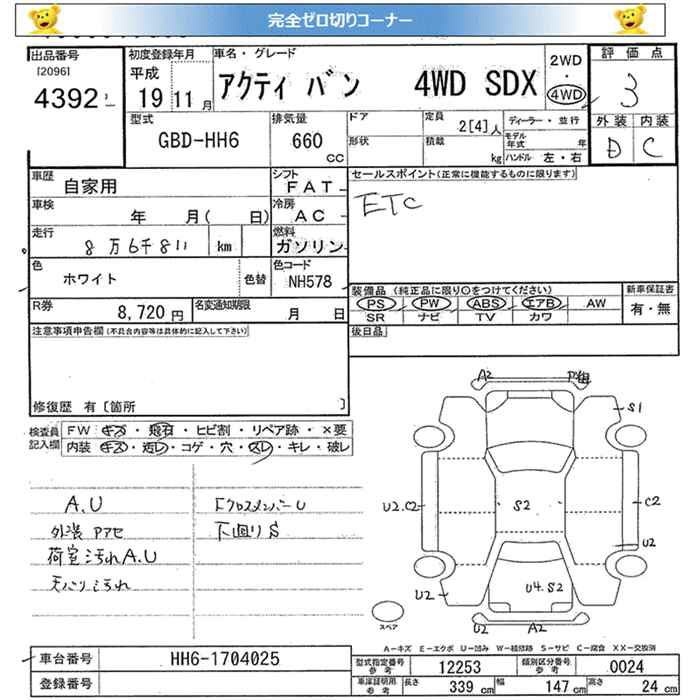 完全ゼロ切りコーナー
出品番号 初度登録年月 車名・グレード 2WD ・ 4WD 評価点
[2096] 平成 19年 11月 アクティ バン 4WD SDX 3
4392
型式 GBD-HH6 排気量 660 CC ドア 形状 定員 2[4]人 積載 kg ディーラー・並行 モデル年式 年 ハンドル 左・右 外装 D 内装 C
車歴 自家用 シフト FAT セールスポイント(正常に機能するものに限ります)
車検 年 月( 日) 冷房 AC ETC
走行 8万6千811 km 燃料 ガソリン
色 ホワイト 色替 色コード NH578
装備品(純正品に限り○をつけてください) 新車保証書
PS PW ABS エアB AW 有・無
SR ナビ TV カワ
R券 8,720円 名変通知期限 月 日
後日品
注意事項申告欄(不具合内容等は具体的に記入して下さい)
修復歴 有[箇所 ]
検査員記入欄 FW キズ・飛石・ヒビ割・リペア跡・×要
内装 キズ・汚レ・コゲ・穴・スレ・キレ・破レ
A.U
外装 Pアセ
荷室 汚れA.U
天バリ汚れ
FクロスメンバーU
下廻りS
A2
S1
U2.C2
S2
C2
U2
U2
U4.S2
U2 A2
スペア
A-キズ E-エクボ U-凹み W-補修跡 S-サビ C-腐食 XX-交換済
車台番号 HH6-1704025
登録番号
型式指定番号 参考 12253 類別区分番号 参考 0024
車庫証明用 参考 長さ 339 cm 幅 147 cm 高さ 24 cm